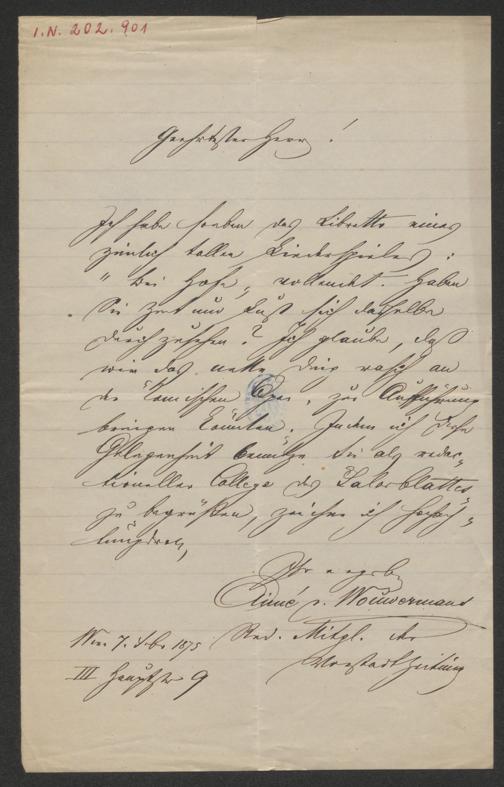 I.N. 202.901
Geehrtester Herr!
Ich habe soeben das Libretto eines
ziemlich tollen Liederspieles:
"Bei Hofe" vollendet. Haben
Sie Zeit und Lust sich dasselbe
durchzusehen? Ich glaube, daß
wir das nette Ding rasch an
der "komischen Oper" zur Aufführung
bringen könnten. Indem ich diese
Gelegenheit benütze Sie als redac-
tionellen College des Salonblattes
zu begrüßen, zeichne ich hochach-
tungsvoll,
Ihr ergeb
Aimé v. Wouvermans
Red. Mitgl. der
Vorstadt Zeitung
Wien 7. 1875
III Hauptstr 9